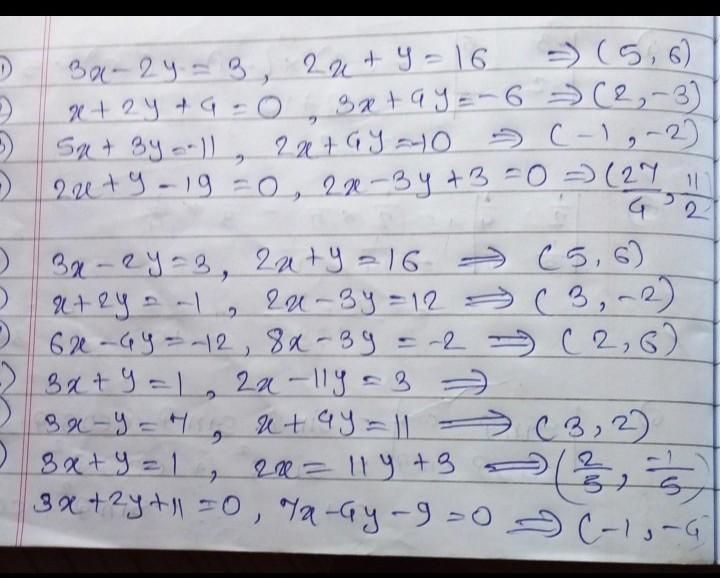 1) 3x - 2y = 3, 2x + y = 16 ⇒ (5, 6)
) x + 2y + 4 = 0, 3x + 4y = -6 ⇒ (2, -3)
) 5x + 3y = -11, 2x + 4y = -10 ⇒ (-1, -2)
) 2x + y - 19 = 0, 2x - 3y + 3 = 0 ⇒ (27/4, 11/2
) 3x - 2y = 3, 2x + y = 16 ⇒ (5, 6)
) x + 2y = -1, 2x - 3y = 12 ⇒ (3, -2)
) 6x - 4y = -12, 8x - 3y = -2 ⇒ (2, 6)
) 3x + y = 1, 2x - 11y = 3 ⇒
) 3x - y = 7, x + 4y = 11 ⇒ (3, 2)
) 3x + y = 1, 2x = 11y + 3 ⇒ (2/5, -1/5)
3x + 2y + 11 = 0, 7x - 4y - 9 = 0 ⇒ (-1, -4